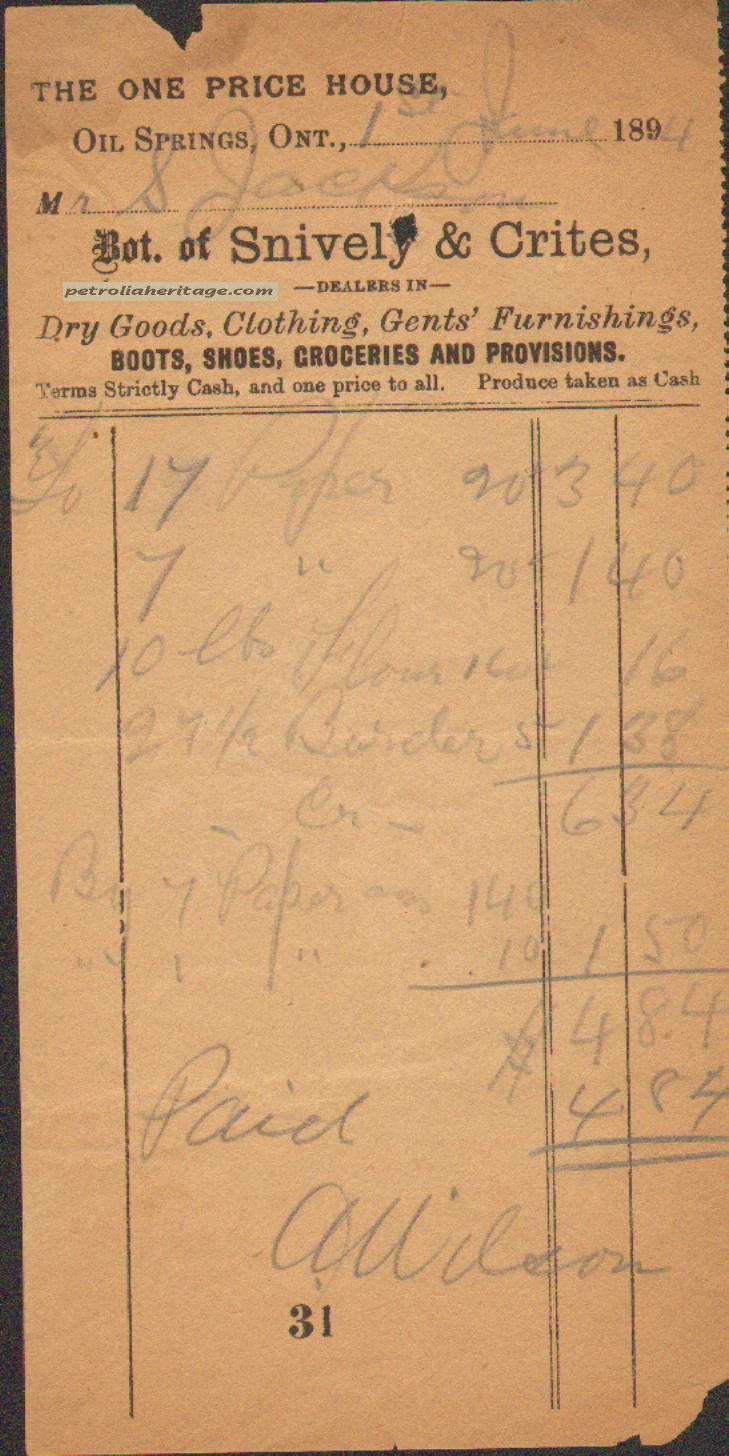 THE ONE PRICE HOUSE,
OIL SPRINGS, ONT., 1st June 1894
Mr S Jackson
Bot. of Snively & Crites,
petroliaheritage.com
—DEALERS IN—
Dry Goods, Clothing, Gents' Furnishings,
BOOTS, SHOES, GROCERIES AND PROVISIONS.
Terms Strictly Cash, and one price to all. Produce taken as Cash
To 17 Paper 20 3 40
7 " 20 1 40
10 lbs Flour 16
27 1/2 Border 5 1 38
Cr — 6 34
By 7 Paper 140
" 1 " 10 1 50
$ 4 84
Paid 4 84
A Wilson
31